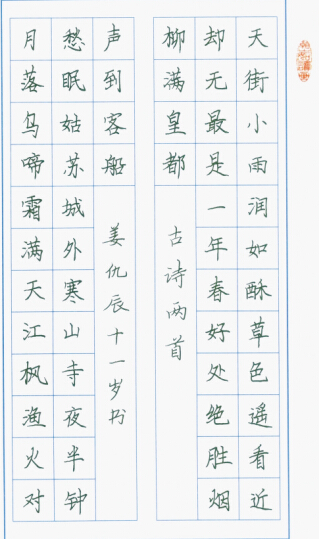 天街小雨润如酥草色遥看近
却无最是一年春好处绝胜烟
柳满皇都
古诗两首
月落乌啼霜满天江枫渔火对
愁眠姑苏城外寒山寺夜半钟
声到客船
姜仇辰十一岁书